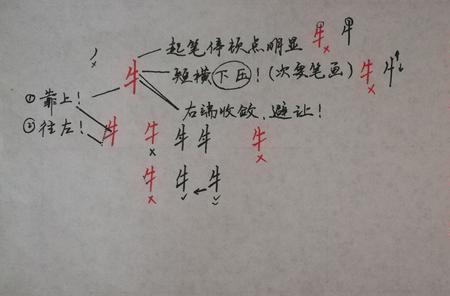 起笔停顿点明显 牛 牛
牛 短横下压！（次要笔画） 牛 牛
① 靠上！ 右端收敛，避让！
② 往左！ 牛 牛 牛 牛 牛
牛 牛 牛